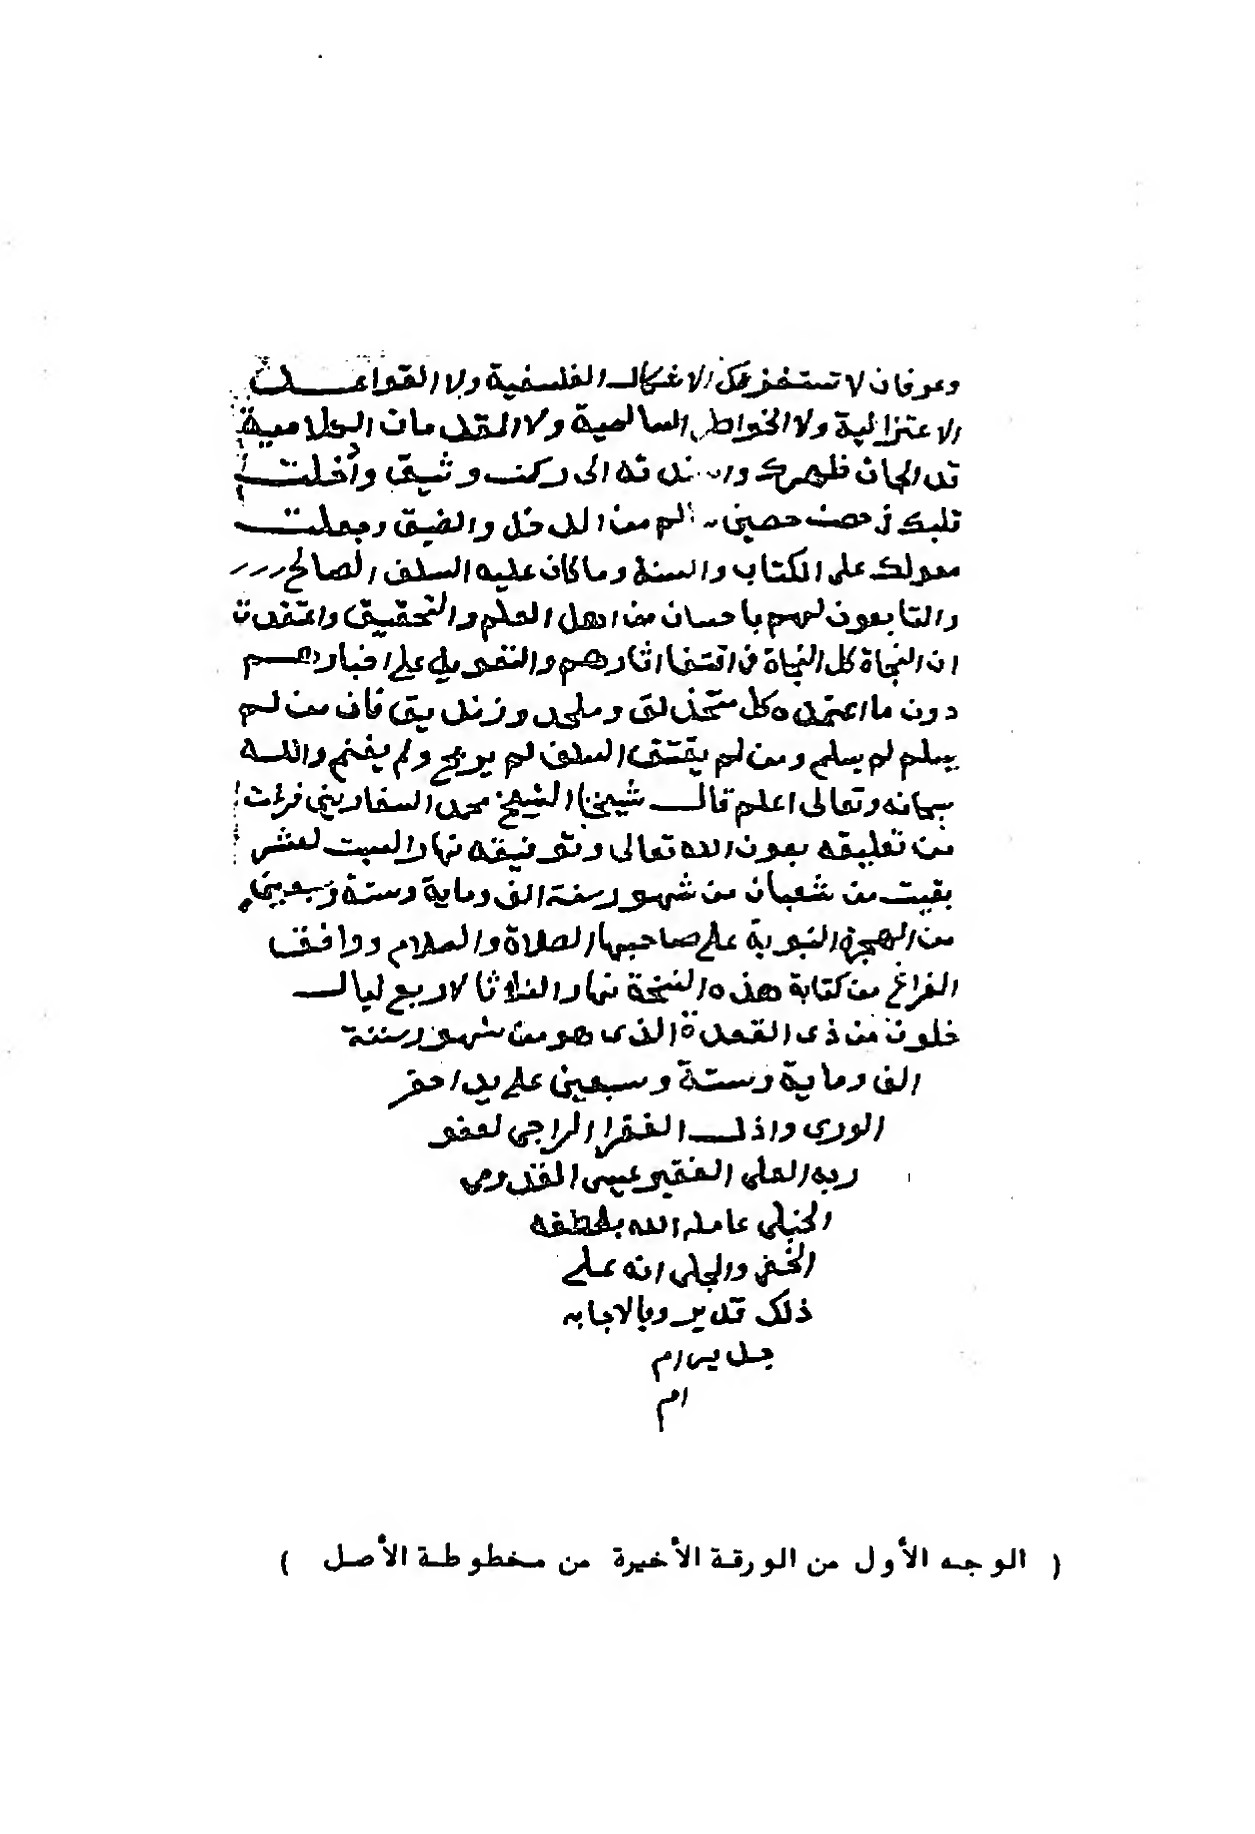 وعرفان لا تستفزنك الاشكال الفلسفية ولا القواعد
الاعتزالية ولا الخواطر السالمية ولا المقدمات الكلامية
قد الجات ظهرك واسندته الى ركن وثيق وأدخلت
قلبك في حصن حصين سالم من الدخل والضيق وجعلت
معولك على الكتاب والسنة وما كان عليه السلف الصالح
والتابعون لهم باحسان من اهل العلم والتحقيق واعتقدت
ان النجاة كل النجاة في اقتفا اثارهم والتعويل على اخبارهم
دون ما اعتمده كل متحذلق وملحد وزنديق فان من لم
يسلم لم يسلم ومن لم يقتف السلف لم يربح ولم يغنم والله
سبحانه وتعالى اعلم قال شيخنا الشيخ محمد السفاريني فرغت
من تعليقه بعون الله تعالى وتوفيقه نهار السبت لعشر
بقيت من شعبان من شهور سنة الف وماية وستة وسبعين
من الهجرة النبوية على صاحبها الصلاة والسلام ووافق
الفراغ من كتابة هذه النسخة نهار الثلاثا لاربع ليال
خلون من ذى القعدة الذى هو من شهور سنة
الف وماية وستة وسبعين على يد احقر
الورى واذل الفقرا الراجي لعفو
ربه العلى الفقير عيسى القدومي
الحنبلي عامله الله بلطفه
الخفي والجلي انه على
ذلك قدير وبالاجابه
جدير ام
ام
( الوجه الأول من الورقة الأخيرة من مخطوطة الأصل )